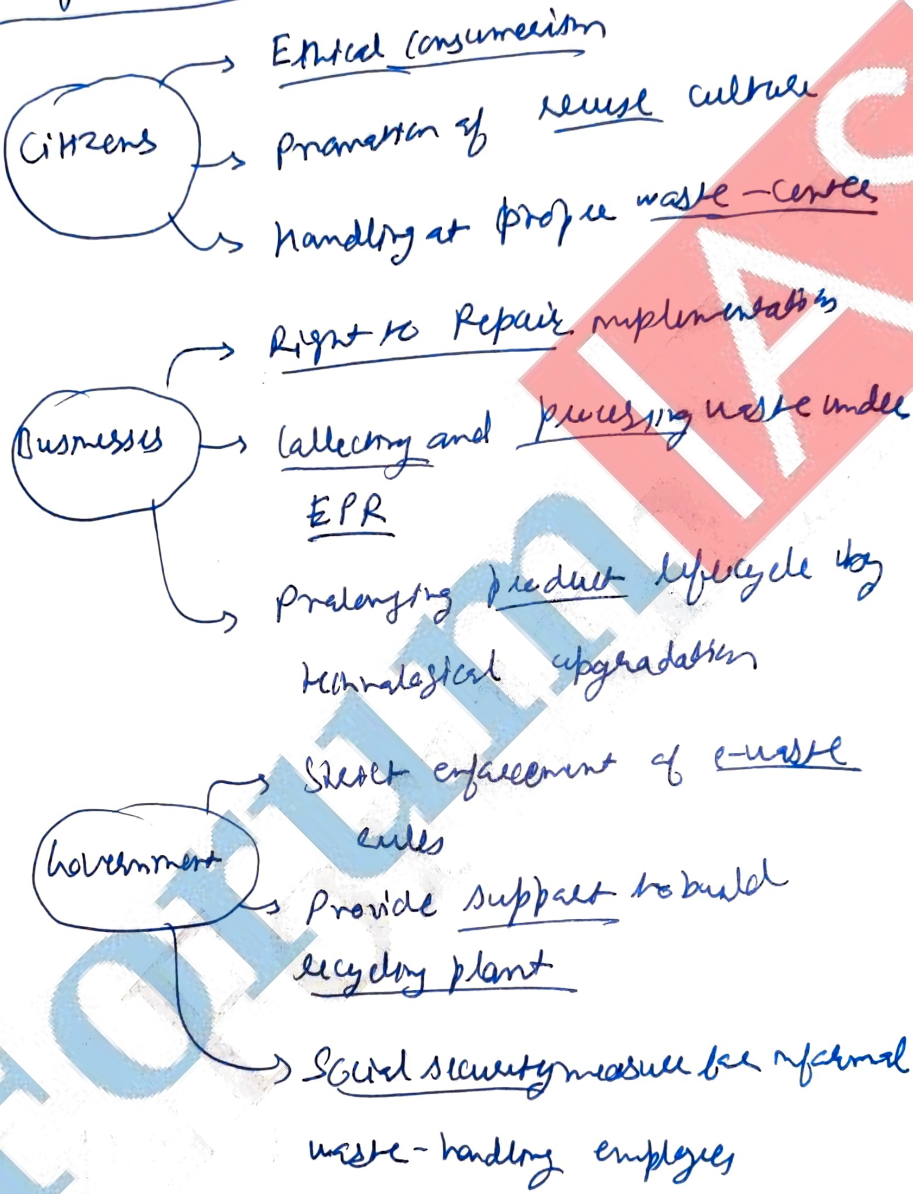 Citizens
Ethical Consumerism
Promotion of reuse culture
Handling at proper waste-center
Businesses
Right to Repair implementation
Collecting and processing waste under
EPR
Prolonging product lifecycle by
technological upgradation
Government
Strict enforcement of e-waste
rules
Provide support to build
recycling plant
Social security measure for informal
waste-handling employees
Forum IAS